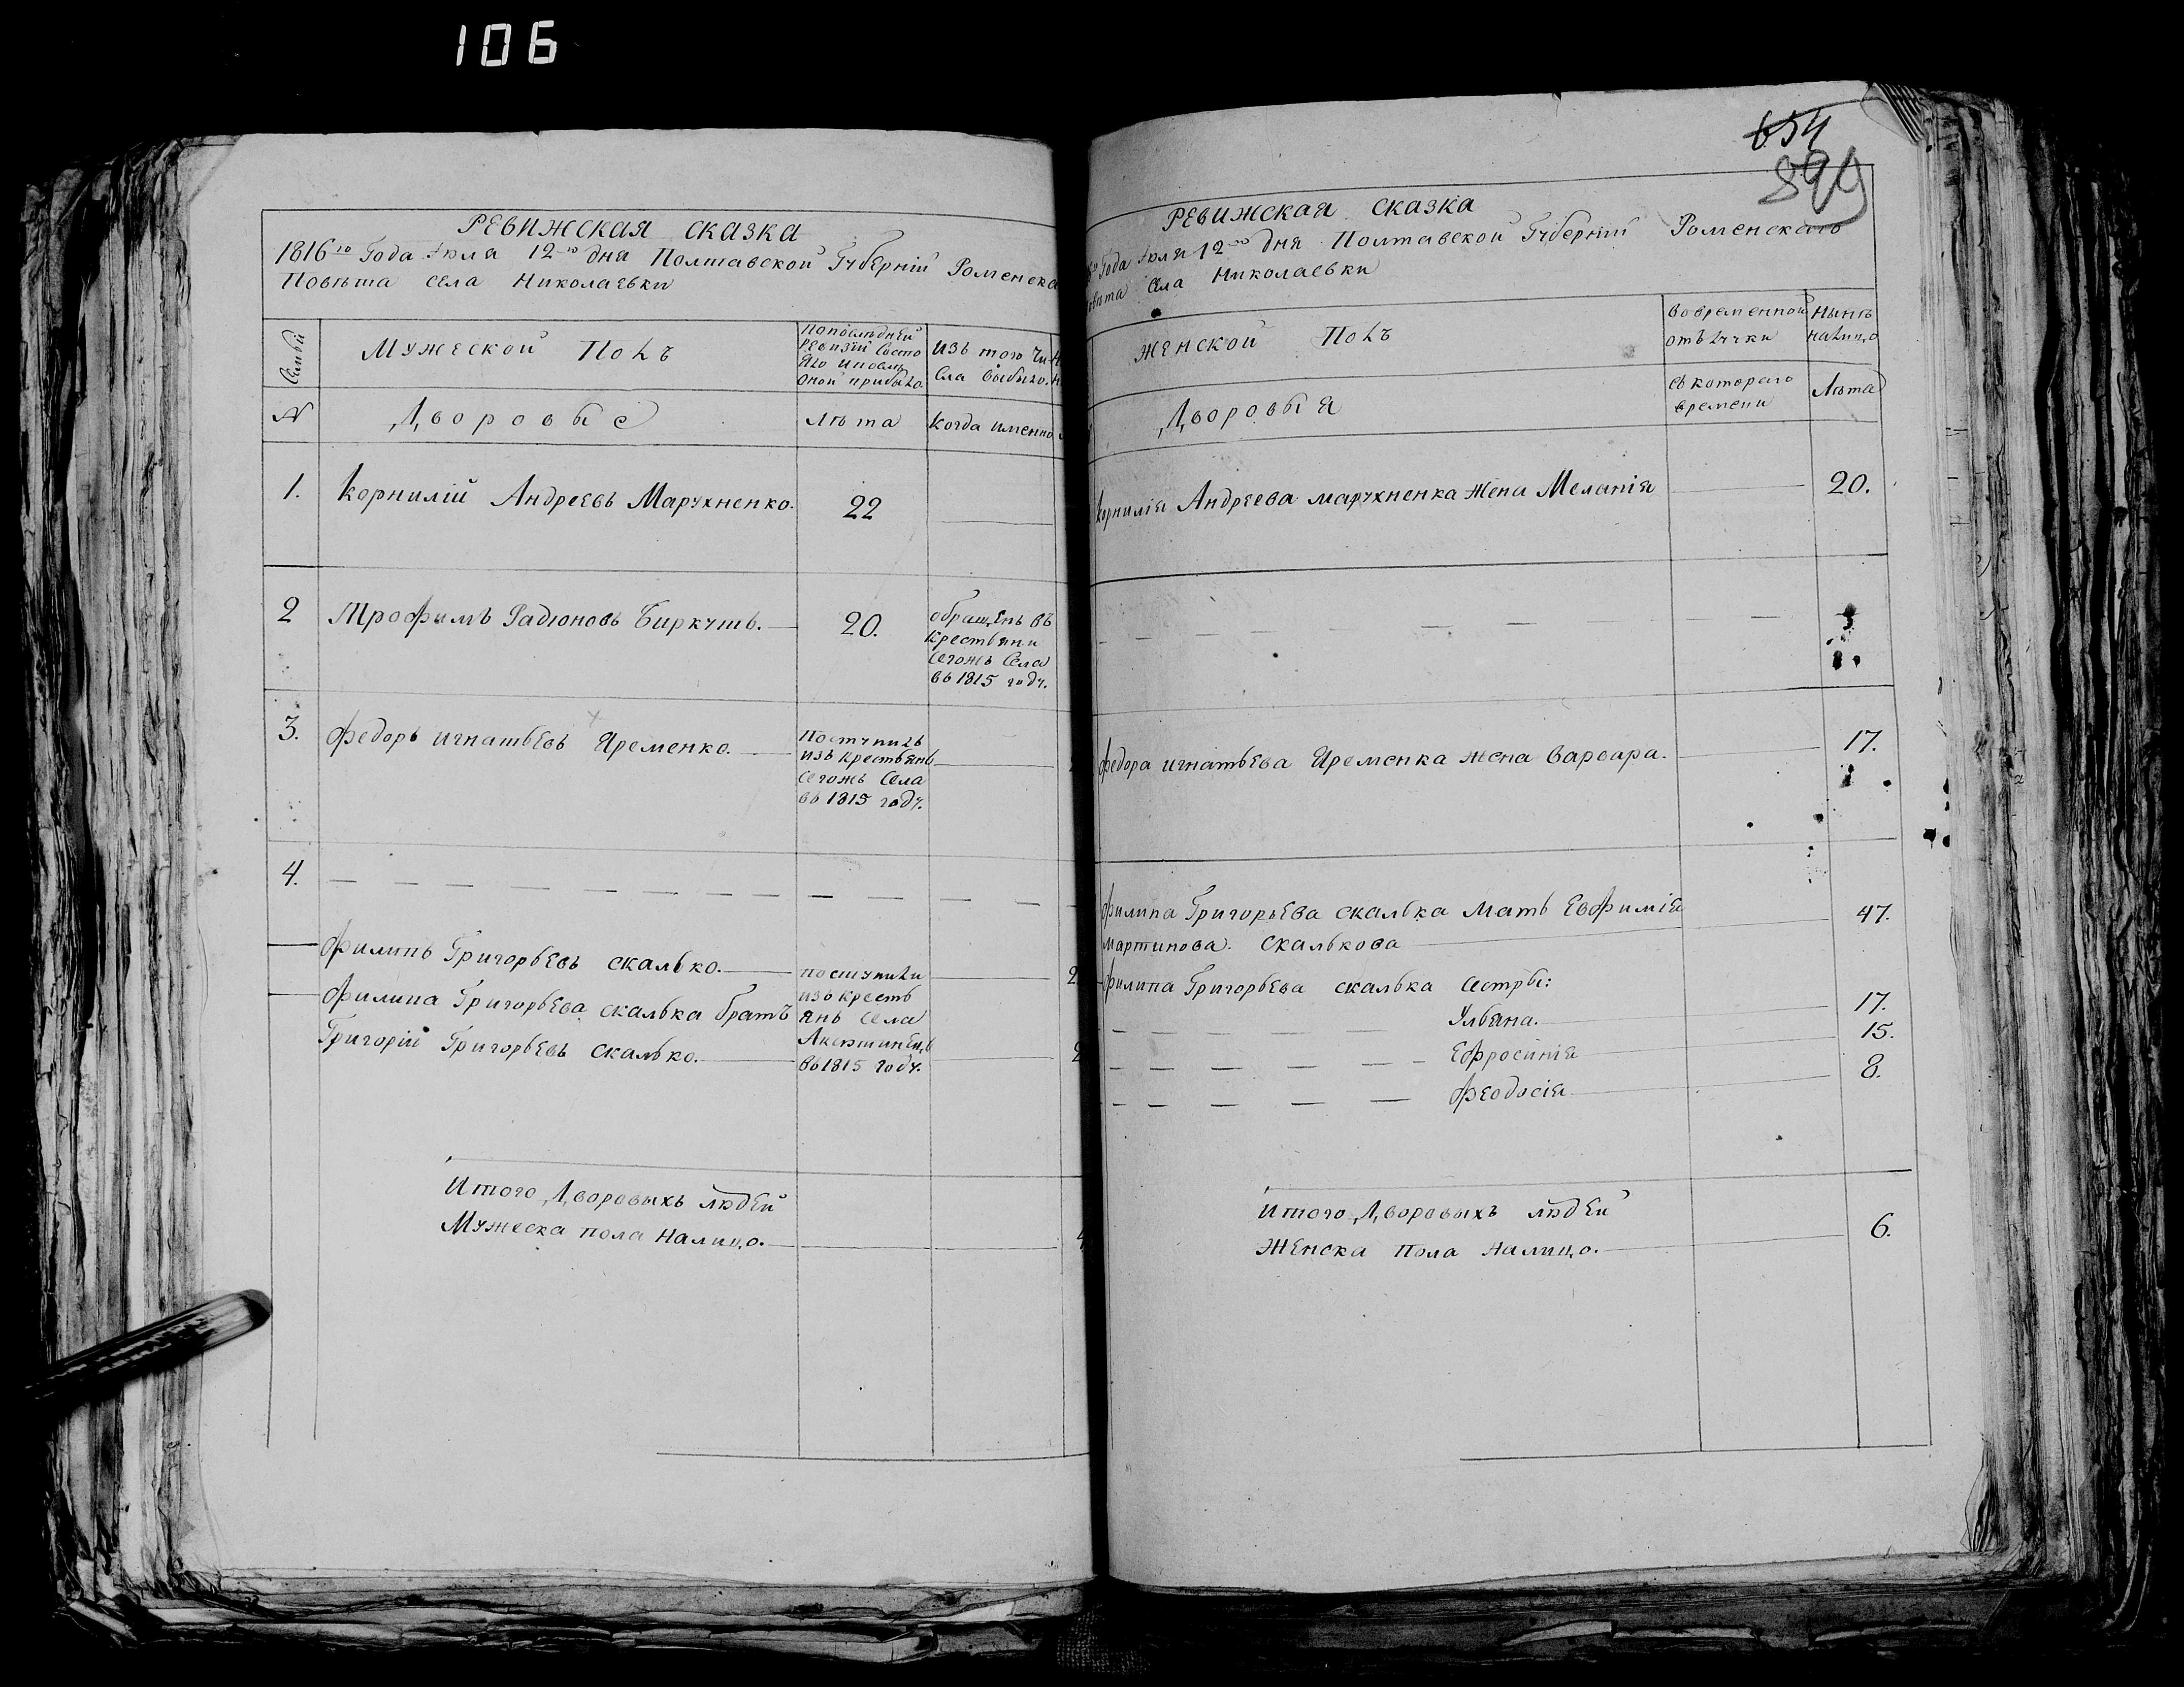 106
РЕВИЖСКАЯ СКАЗКА
1816го Года Июля 12го дня Полтавской Губерніи Роменска
Повѣта села Николаевки
Семьи
Мужеской Полъ
Попослѣдней
ревизіи Состо
яло ипослѣ
оной прибыло.
изъ того Чи
сла выбыло.
N
Дворовые
Лѣта
Когда именно
1.
Корнилій Андреевъ Марухненко.
22
2
Трофимъ Радіоновъ Биркунъ.
20.
обращенъ въ
крестьяни
сегожъ Села
въ 1815 году.
3.
Федоръ Игнатьевъ Яременко.
поступилъ
изъ крестьянъ
сегожъ Села
въ 1815 году.
4.
Филипъ Григорьевъ Скалько.
Филипа Григорьева Скалька братъ
Григорій Григорьевъ Скалько.
поступили
изъ кресть
янъ села
въ 1815 году.
Итого Дворовыхъ людей
Мужеска пола налицо.
4
654
899
РЕВИЖСКАЯ СКАЗКА
Года Июля 12го дня Полтавской Губерніи Роменскаго
Села Николаевки
Женской Полъ
вовременной
отълучки
Нынѣ
налицо
Дворовыя
съ котораго
времени
Лѣта
Корнилія Андреева Марухненка жена Меланія
20.
Федора Игнатьева Яременка жена Варвара.
17.
Филипа Григорьева Скалька Мать Евфимія
Мартинова. Скалькова
47.
Филипа Григорьева Скалька Сестры:
Ульяна.
17.
Ефросинія
15.
Феодосія
8.
Итого Дворовыхъ людей
Женска пола налицо.
6.